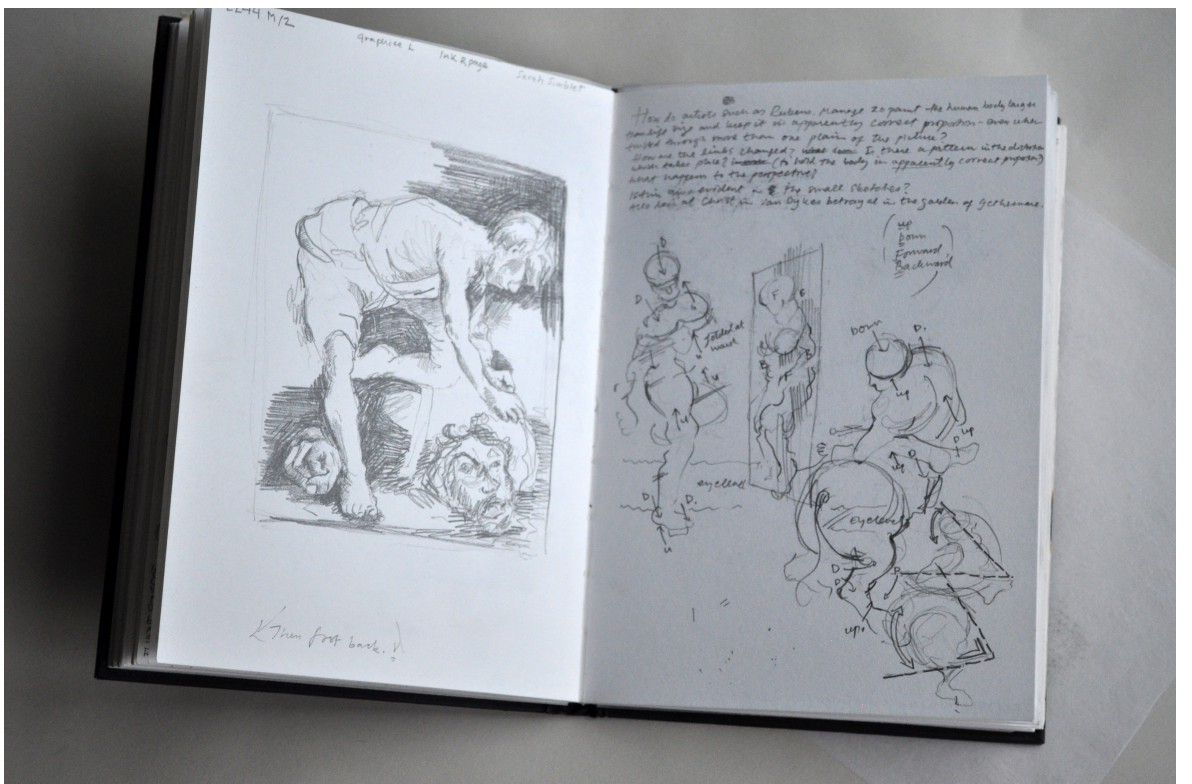 2244 M/2
Graphite L
Ink R page
Sarah Simblet
How do artists such as Rubens, manage to paint the human body larger
than life size and keep it in apparently correct proportion - even when
twisted through more than one plain of the picture?
How are the limbs changed? Is there a pattern in the distortion
which takes place? (to hold the body in apparently correct proportion)
what happens to the perspective?
is this evident in the small sketches?
Also look at Christ in Van Dykes betrayal in the garden of gethsemane.
up
Down
Forward
Backward
D
D
folded at
U
U
U
eyelevel
D
D
U
F
F
B
B
Down
D.
up
D
up
E
D
eyelevel
D
D
D
up.
Then foot back.